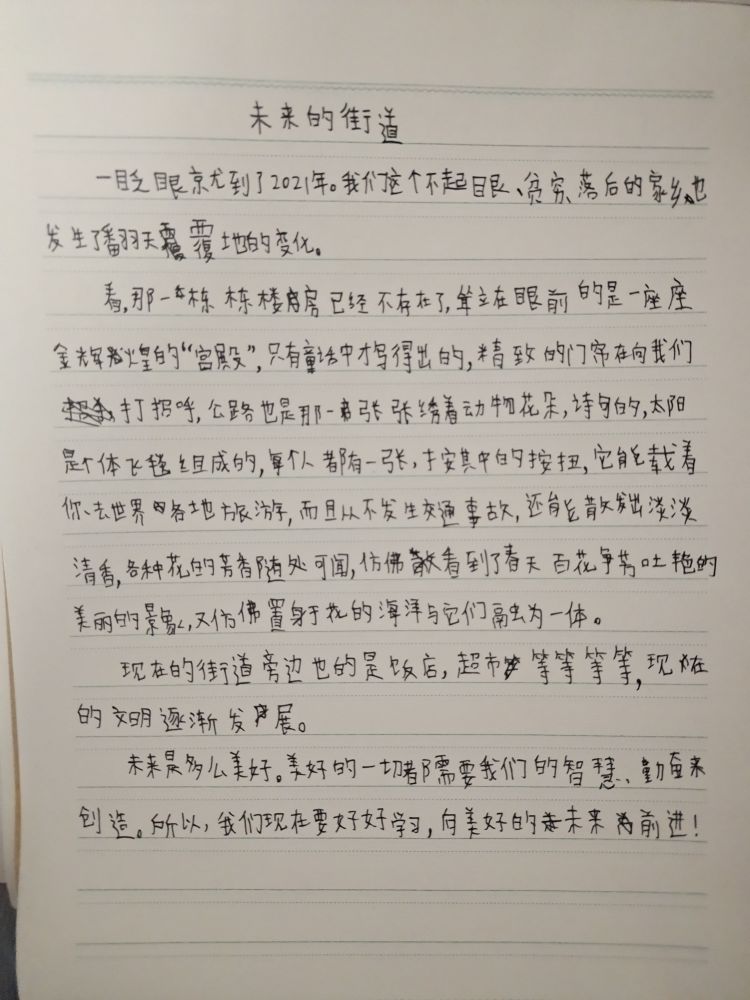 未来的街道
一眨眼京尤到了2021年。我们这个不起眼、贫穷、落后的家乡,也
发生了翻天覆地的变化。
看,那一栋栋楼房已经不存在了,耸立在眼前的是一座座
金辉煌的“宫殿”,只有童话中才写得出的,精致的门帘在向我们
打招呼,公路也是那一张张绣着动物花朵,诗句的,太阳
是个体飞毯组成的,每个人都有一张,按其中的按扭,它能载着
你去世界各地旅游,而且从不发生交通事故,还能散发出淡淡
清香,各种花的芳香随处可闻,仿佛看到了春天百花争艿吐艳的
美丽的景象,又仿佛置身于花的海洋与它们融为一体。
现在的街道旁边也的是饭店,超市等等等等,现在
的文明逐渐发展。
未来是多么美好。美好的一切都需要我们的智慧、勤奋来
创造。所以,我们现在要好好学习,向美好的未来前进!